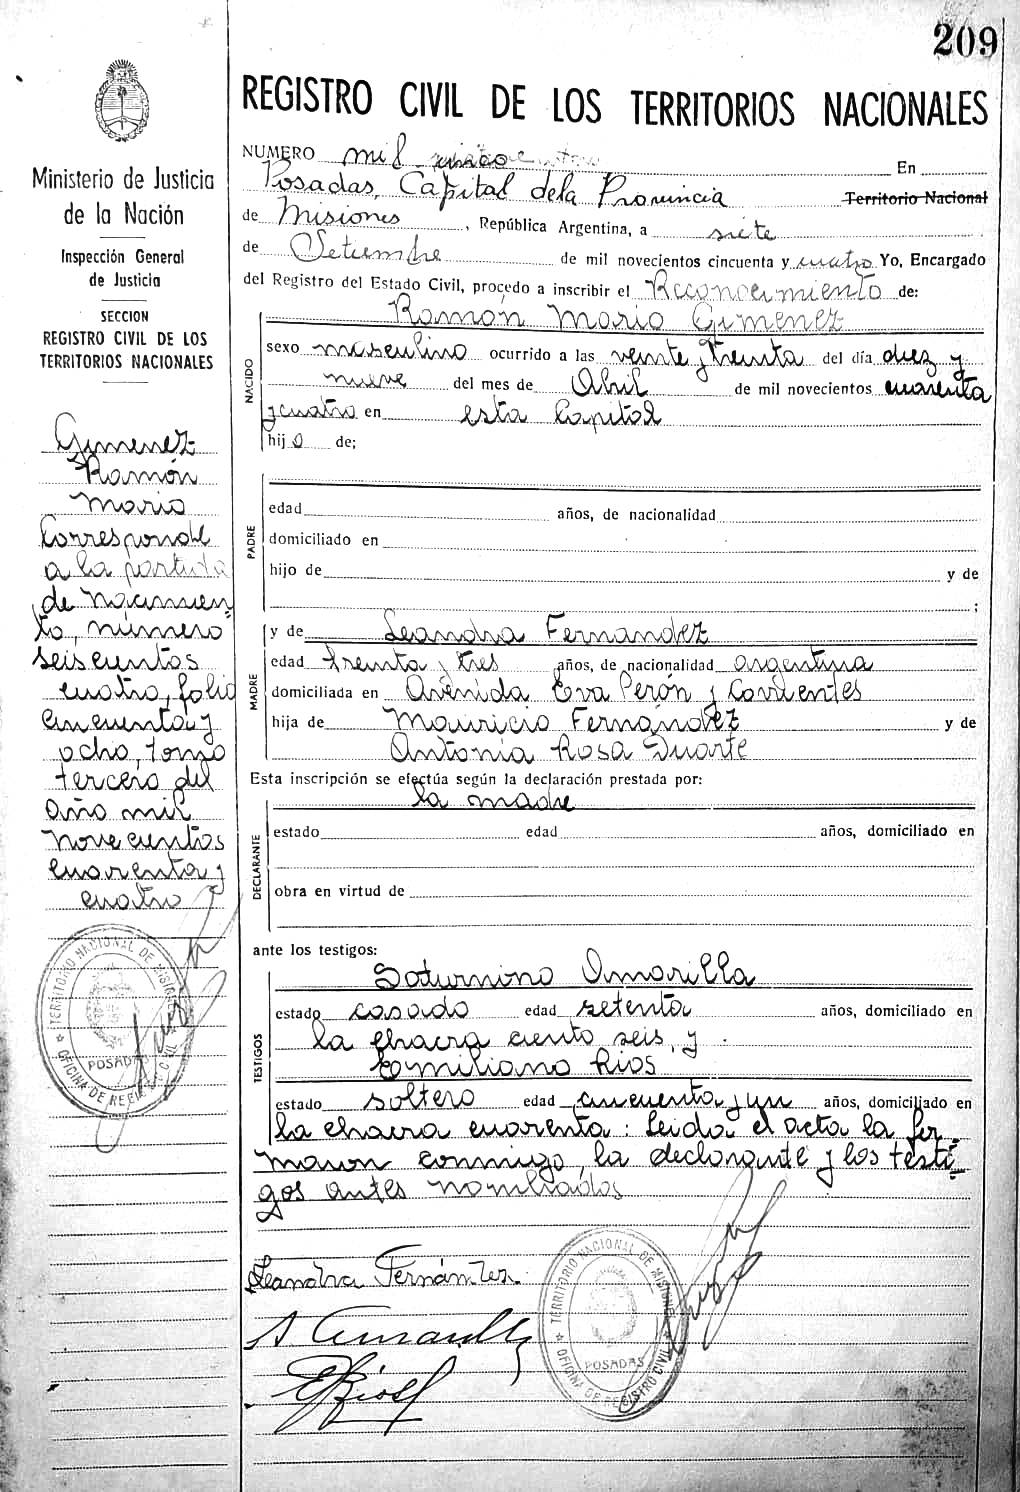 209
REGISTRO CIVIL DE LOS TERRITORIOS NACIONALES
Ministerio de Justicia
de la Nación
Inspección General
de Justicia
SECCION
REGISTRO CIVIL DE LOS
TERRITORIOS NACIONALES
Gimenez
Ramón
Mario
Corresponde
a la partida
de nacimien
to, número
seiscientos
cuatro, folio
cincuenta y
ocho, tomo
tercero del
año mil
novecientos
cuarenta y
cuatro
TERRITORIO NACIONAL DE MISIONES
POSADAS
OFICINA DE REGISTRO CIVIL
NUMERO mil En
Posadas, Capital de la Provincia Territorio Nacional
de Misiones, República Argentina, a siete
de Setiembre de mil novecientos cincuenta y cuatro Yo, Encargado
del Registro del Estado Civil, procedo a inscribir el Reconocimiento de:
Ramón Mario Gimenez
NACIDO
sexo masculino ocurrido a las veinte y treinta del día diez y
nueve del mes de Abril de mil novecientos cuarenta
y cuatro en esta Capital
hijo de;
PADRE
edad años, de nacionalidad
domiciliado en
hijo de y de
;
MADRE
y de Leandra Fernandez
edad treinta y tres años, de nacionalidad argentina
domiciliada en Avenida Eva Perón y Corrientes
hija de Mauricio Fernández y de
Antonia Rosa Duarte
Esta inscripción se efectúa según la declaración prestada por:
la madre
DECLARANTE
estado edad años, domiciliado en
obra en virtud de
ante los testigos:
TESTIGOS
Saturnino Amarilla
estado casado edad setenta años, domiciliado en
la chacra ciento seis, y
Emiliano Rios
estado soltero edad cincuenta y un años, domiciliado en
la chacra cuarenta: Leida el acta la fir-
maron conmigo, la declarante y los testi-
gos antes nombrados
Leandra Fernández
S Amarilla
E Rios
TERRITORIO NACIONAL DE MISIONES
POSADAS
OFICINA DE REGISTRO CIVIL